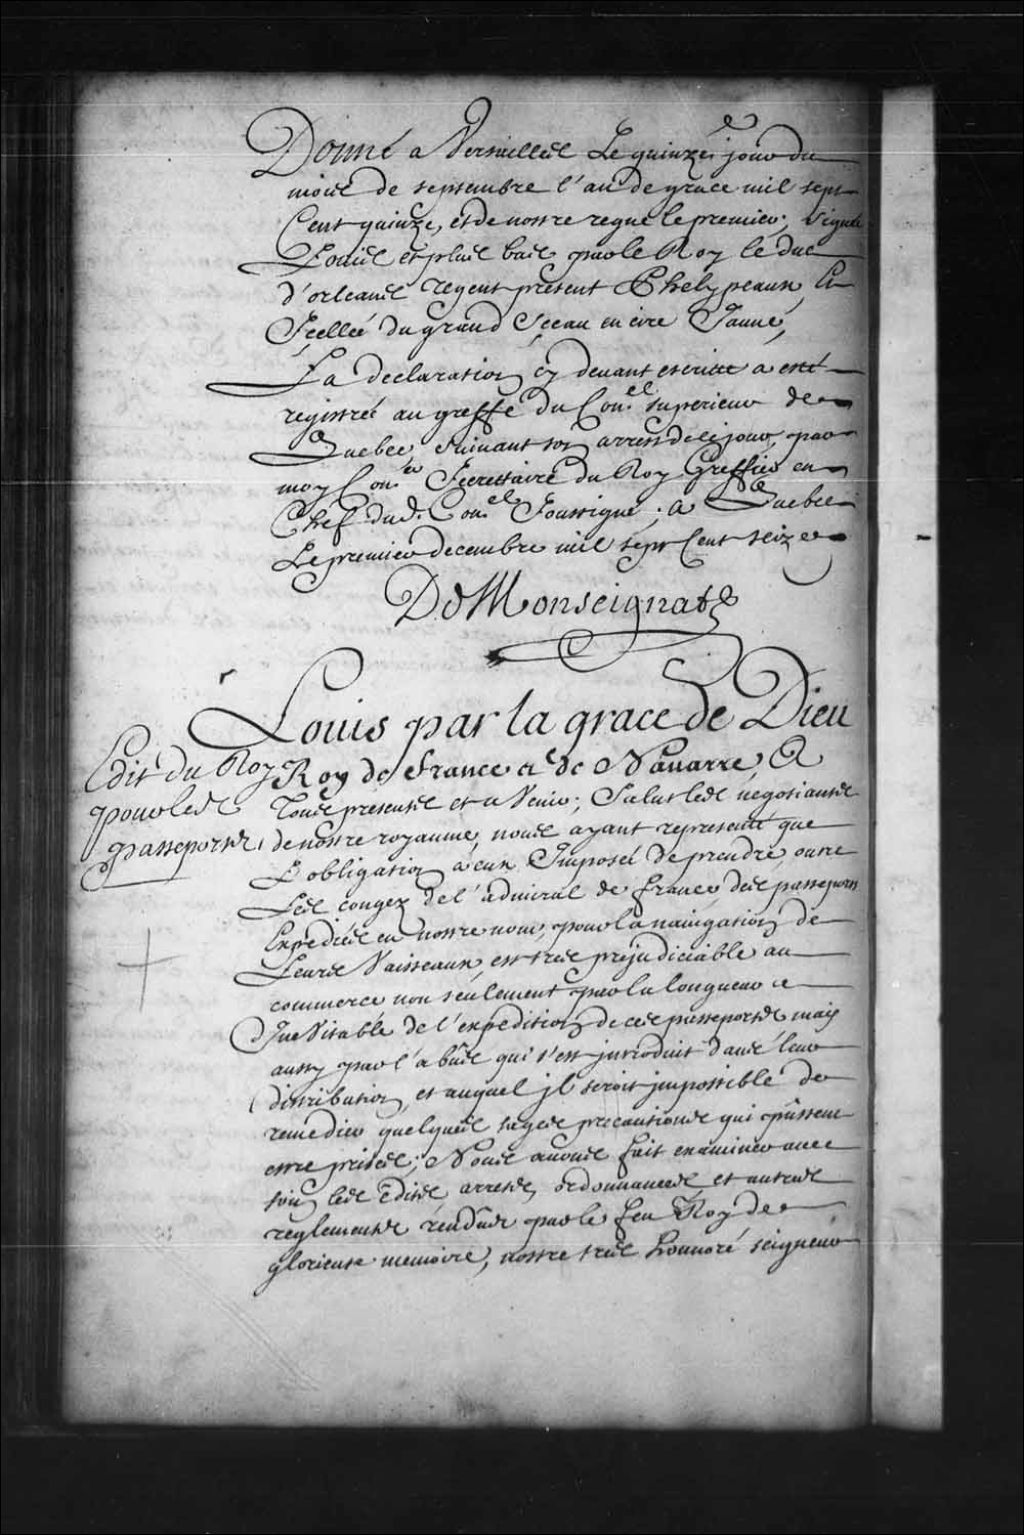 Donné a Versailles Le quinze.e jour du
mois de septembre l'an de grace mil sept
Cent quinze, et de nostre regne le premier, Signé
Louis et plus bas par le Roy le duc
d'orleans regent present Phelypeaux, Et
Scellée du grand Sceau en cire Jaune,
La declaration cy devant escritte a esté
registrée au greffe du Con.el superieur de
Quebec, suivant son arrest de ce jour, par
moy Con.er Secrettaire du Roy Greffier en
Chef dud. Con.el Soussigné, a Quebec
Le premier decembre mil sept Cent seize
De Monseignat
Louis par la grace de Dieu
Edit du Roy
pour les
passeports,
Roy de france et de Navarre, A
Tous presents et a Venir, Salut les negotiants
de nostre royaume, nous ayant representé que
L'obligation a eux Imposée de prendre, outre
Les congez de l'admiral de france, des passeports
Expediés en nostre nom, pour la navigation de
Leurs Vaisseaux, est tres prejudiciable au
commerce non seulement par la longueur
Inevitable de l'expedition de ces passeports mais
aussy par l'abus qui s'est introduit dans leur
distribution, et auquel jl seroit jmpossible de
remedier quelques sages precautions qui pûssent
estre prises; Nous avons fait examiner avec
soin les Edits, arrests, ordonnances, et autres
reglements rendûs par le feu Roy de
glorieuse memoire, nostre tres honnoré seigneur